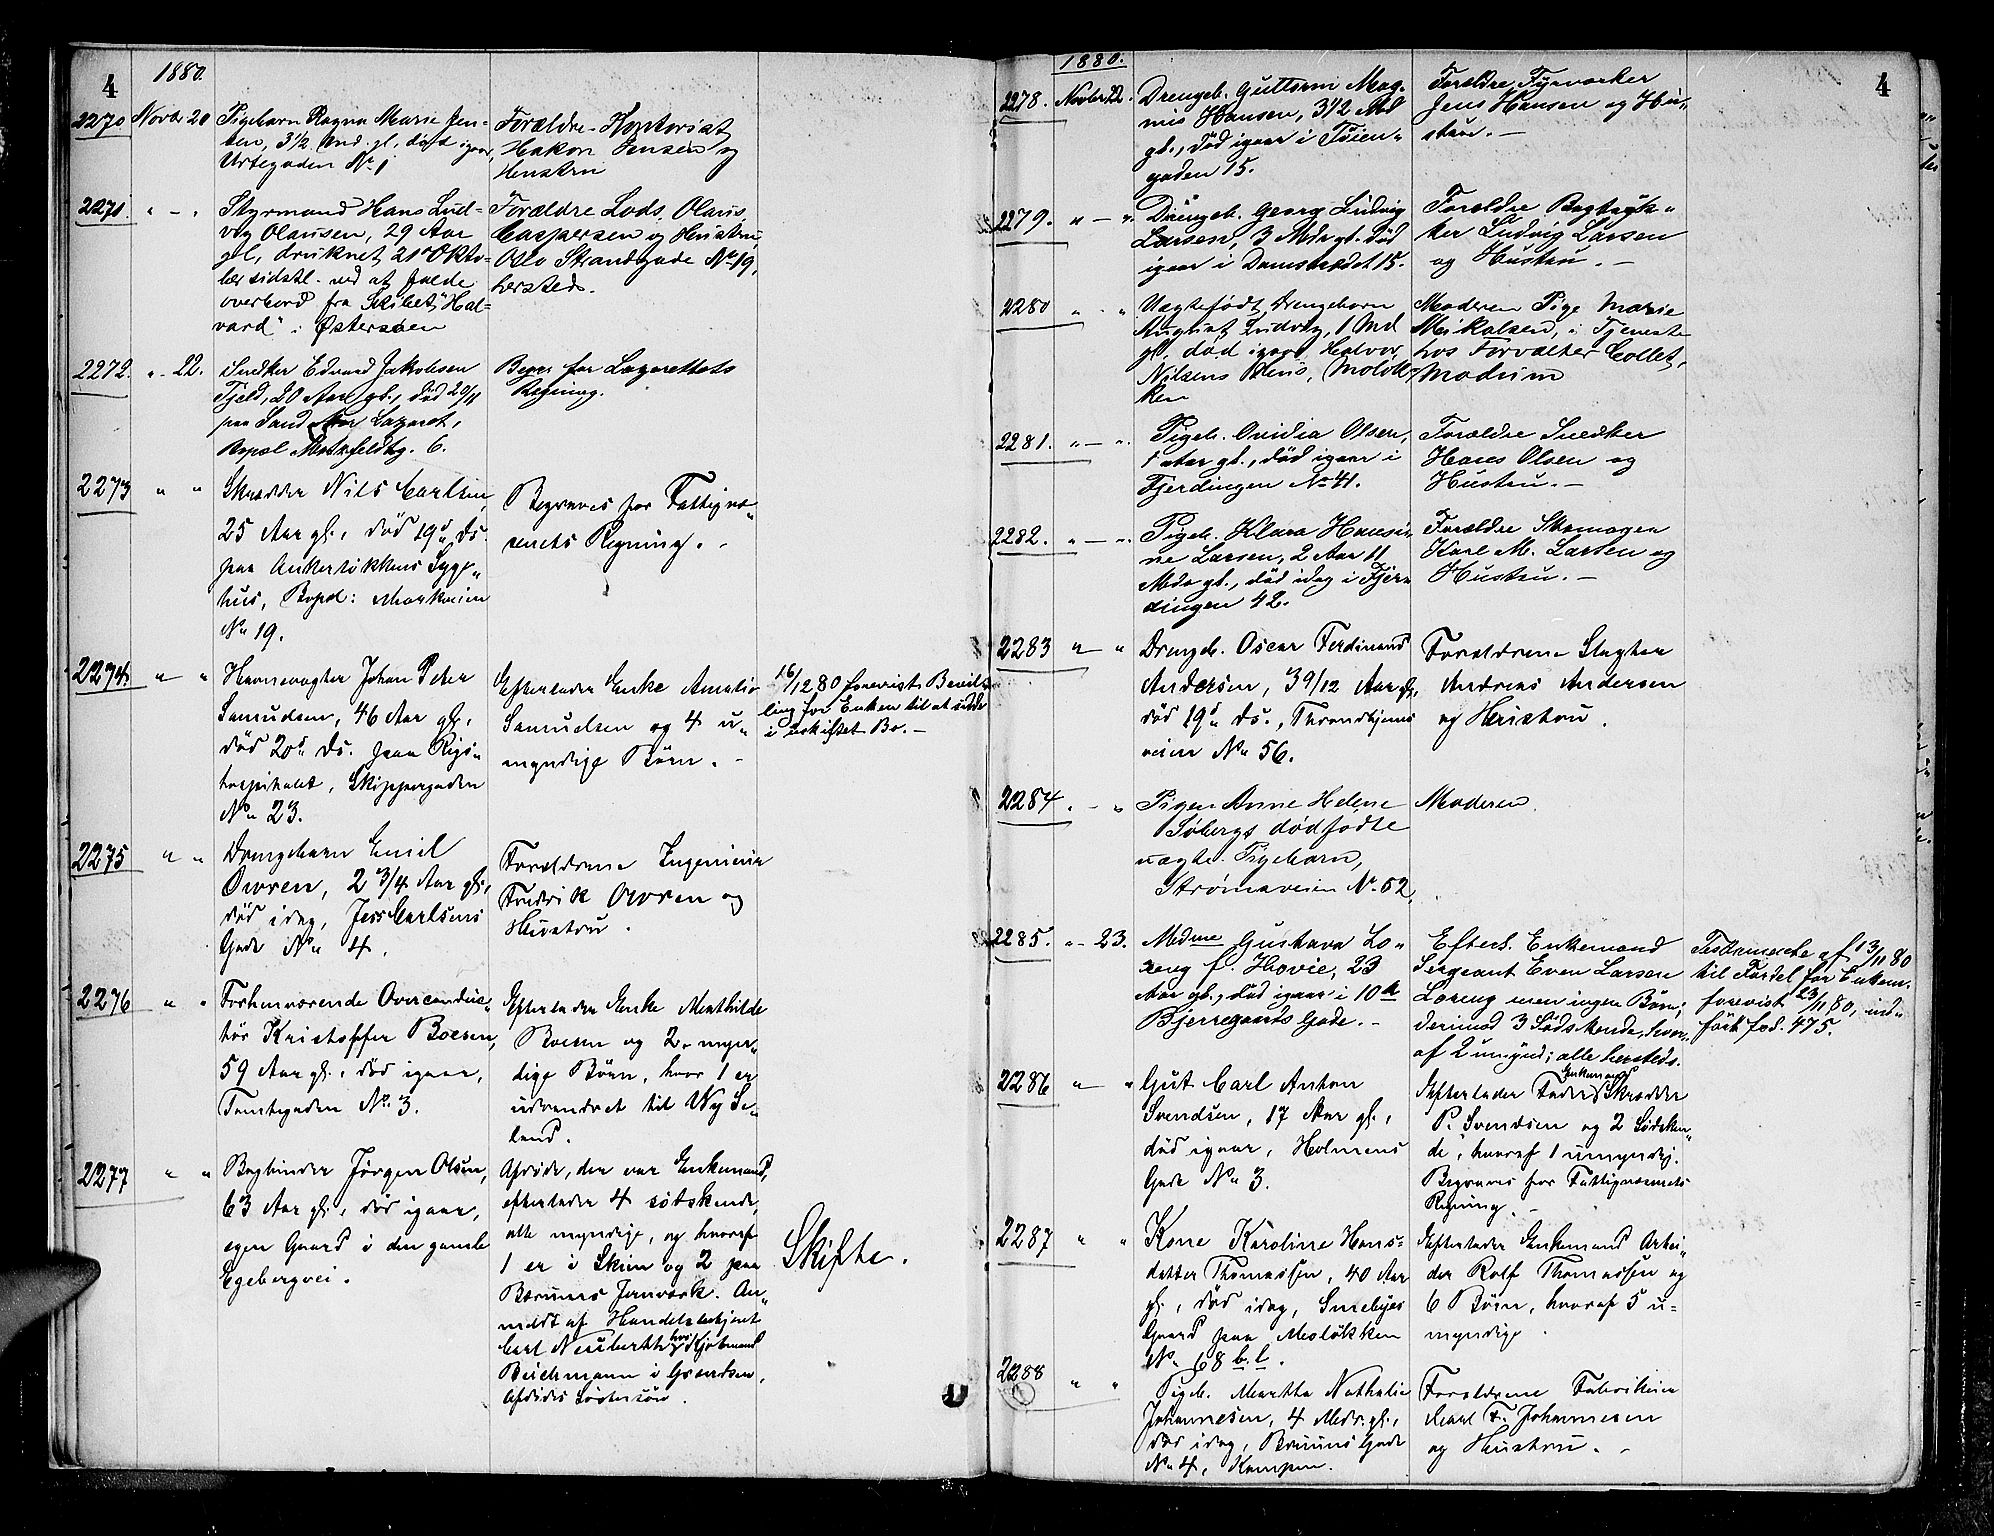 4
1880.
2270 Novbr 20 Pigebarn Ragna Marie Jen-
sen, 3 1/2 Md. gl., død igaar,
Urtegaden No 1
Forældre Kontorist
Hakon Jensen og
Hustru
2271. " - " Styrmand Hans Lud-
vig Olausen, 29 Aar
gl., druknet 21de Okto-
ber sidstl. ved at falde
overbord fra Skibet "Hal-
vard" i Østersøen
Forældre Lods. Olaus
Caspersen og Hustru,
Oslo Strandgade No 19,
hersteds.
2272. " - 22. Snedker Edvard Jakobsen
Fjeld, 20 Aar gl., død 20/11
paa Sand Lazaret,
Bopæl Markveldtg. 6.
Begr. for Lazarettets
Regning.
2273 " " Skrædder Nils Carlsen
25 Aar gl., død 19d Ds.
paa Ankerløkkens Syge"
hus, Bopæl: Markveien
No 19.
Begraves for Fattigvæ"
senets Regning. -
2274. " " Havnevagter Johan Peter
Samuelsen, 46 Aar gl.,
død 20d Ds. paa Rigs"
hospitalet, Skippergaden
No 23.
Efterlader Enke Amalie
Samuelsen og 4 u"
myndige Børn. -
16/12 80 forevist Bevil-
ling for Enken til at sidde
i uskiftet Bo. -
2275 " " Drengebarn Emil
Owren, 2 3/4 Aar gl.,
død idag, Jess Carlsens
Gade No 4.
Forældrene Ingeniør
Fredrik Owren og
Hustru.
2276 " " Forhenværende Overconduc"
tør Kristoffer Boesen,
59 Aar gl., død igaar,
Tomtegaden No 3.
Efterlader Enke Mathilde
Boesen og 2 myn"
dige Børn, hvor 1 er
udvandret til Ny Se-
land.
2277 " " Bogbinder Jørgen Olsen,
63 Aar gl., død igaar,
egen Gaard i den gamle
Egebergvei.
Afdøde, der var Enkemand,
efterlader 4 Søtskende,
alle myndige, og hvoraf
1 er i Skien og 2 paa
Bærums Jernværk. An"
meldt af Handelsbetjent
Carl Neuberth hos Kjøbmand
Buchmann i Grændsen,
Afdødes Søstersøn.
Skifte.
4
1880.
2278. Novbr 22. Drengeb. Guttorm Mag-
nus Hansen, 3 1/2 Md
gl., død igaar i Tøien"
gaden 15.
Forældre Fyrvorker
Jens Hansen og Hu"
stru. -
2279. " - " Drengeb. Georg Ludvig
Larsen, 3 Mdr gl. død
igaar i Damstrædet 15.
Forældre Bogtryk"
ker Ludvig Larsen
og Hustru. -
2280 " - " Uægtefødt Drengebarn
August Ludvig, 1 Md
gl. død igaar Halvor
Nilsens Huus, Moløk-
ken
Moderen Pige Marie
Mikalsen, i Tjeneste
hos Forvalter Collet,
Modum
2281. " - " Pigeb. Ovidia Olsen,
1 Aar gl., død igaar i
Fjerdingen No 41.
Forældre Snedker
Hans Olsen og
Hustru. -
2282. " - " Pigeb. Klara Hansi"
ne Larsen, 2 Aar 11
Mdr gl., død idag i Fjer"
dingen 42.
Forældre Skomager
Karl M. Larsen og
Hustru. -
2283 " - " Drengeb. Oscar Ferdinand
Andersen, 3 9/12 Aar gl.,
død 19d Ds., Throndhjems
veien No 56.
Forældrene Slagter
Andreas Andersen
og Hustru.
2284 . - " Pigen Anne Helene
Søbergs dødfødte
uægte. Pigebarn,
Strømsveien No 52.
Moderen.
2285. " - 23. Madme Gustava Lo"
reng f. Hovie, 23
Aar gl., død igaar i 10 b
Bjerregaards Gade. -
Efterl. Enkemand
Sergeant Even Larsen
Loreng men ingen Børn;
derimod 3 Sødskende, hvor"
af 2 umynd; alle hersteds.
Testamente af 13/11 80
til Fordel for Enkem.
forevist 23/11 80, ind"
ført fol. 475.
2286 " - " Gut Carl Anton
Svendsen, 17 Aar gl.,
død igaar, Holmens
Gade No 3.
Enkemand
Efterlader Fader Skrædder
P. Svendsen og 2 Sødsken"
de, hvoraf 1 umyndig.
Begraves for Fattigvæsenets
Regning. -
2287 " " Kone Karoline Hans-
datter Thomassen, 40 Aar
gl., død idag, Smebyes
Gaard paa Moløkken
No 68 b.l.
Efterlader Enkemand Arbei"
der Rolf Thomassen og
6 Børn, hvoraf 5 u-
myndige.
2288 " " Pigeb. Martha Nathalie
Johannesen, 4 Mdr. gl.,
død idag, Bruuns Gade
No 4, Kampen.
Forældrene Fabrikeier
Karl F. Johannesen
og Hustru. -